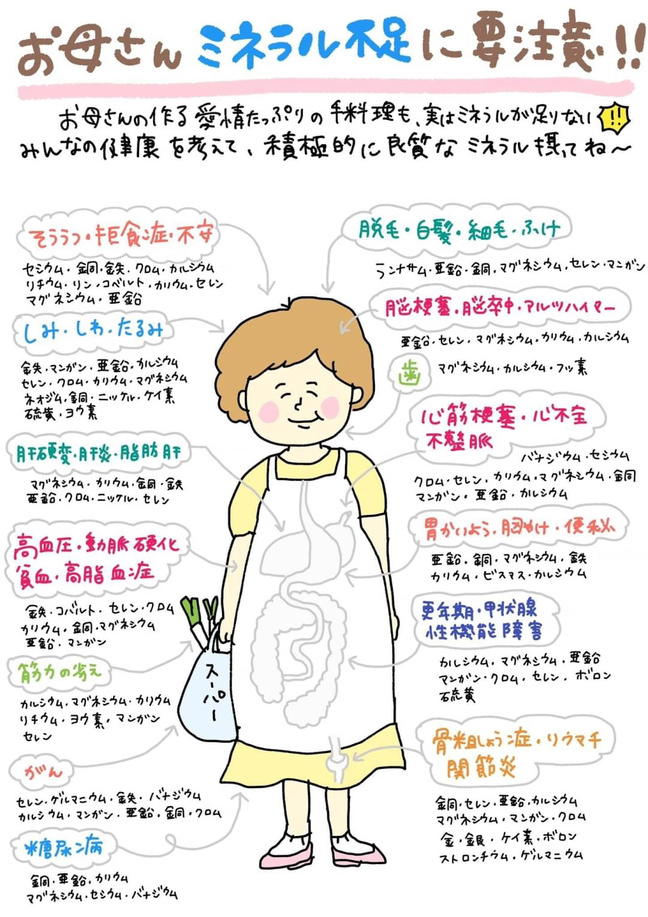 お母さん ミネラル不足に要注意!!
お母さんの作る愛情たっぷりの手料理も、実はミネラルが足りない!!
みんなの健康を考えて、積極的に良質なミネラル摂ってね〜
そううつ・拒食症・不安
セシウム・銅・鉄・クロム・カルシウム
リチウム・リン・コバルト・カリウム・セレン
マグネシウム・亜鉛
しみ・しわ・たるみ
鉄・マンガン・亜鉛・カルシウム
セレン・クロム・カリウム・マグネシウム
ネオジム・銅・ニッケル・ケイ素
硫黄・ヨウ素
肝硬変・肝炎・脂肪肝
マグネシウム・カリウム・銅・鉄
亜鉛・クロム・ニッケル・セレン
高血圧・動脈硬化
貧血・高脂血症
鉄・コバルト・セレン・クロム
カリウム・銅・マグネシウム
亜鉛・マンガン
筋力の衰え
カルシウム・マグネシウム・カリウム
リチウム・ヨウ素・マンガン
セレン
がん
セレン・ゲルマニウム・鉄・バナジウム
カルシウム・マンガン・亜鉛・銅・クロム
糖尿病
銅・亜鉛・カリウム
マグネシウム・セシウム・バナジウム
スーパー
脱毛・白髪・細毛・ふけ
ランナサム・亜鉛・銅・マグネシウム・セレン・マンガン
脳梗塞・脳卒中・アルツハイマー
亜鉛・セレン・マグネシウム・カリウム・カルシウム
歯
マグネシウム・カルシウム・フッ素
心筋梗塞・心不全
不整脈
バナジウム・セシウム
クロム・セレン・カリウム・マグネシウム・銅
マンガン・亜鉛・カルシウム
胃かいよう・胸やけ・便秘
亜鉛・銅・マグネシウム・鉄
カリウム・ビスマス・カルシウム
更年期・甲状腺
性機能障害
カルシウム・マグネシウム・亜鉛
マンガン・クロム・セレン・ボロン
硫黄
骨粗しょう症・リウマチ
関節炎
銅・セレン・亜鉛・カルシウム
マグネシウム・マンガン・クロム
金・銀・ケイ素・ボロン
ストロンチウム・ゲルマニウム